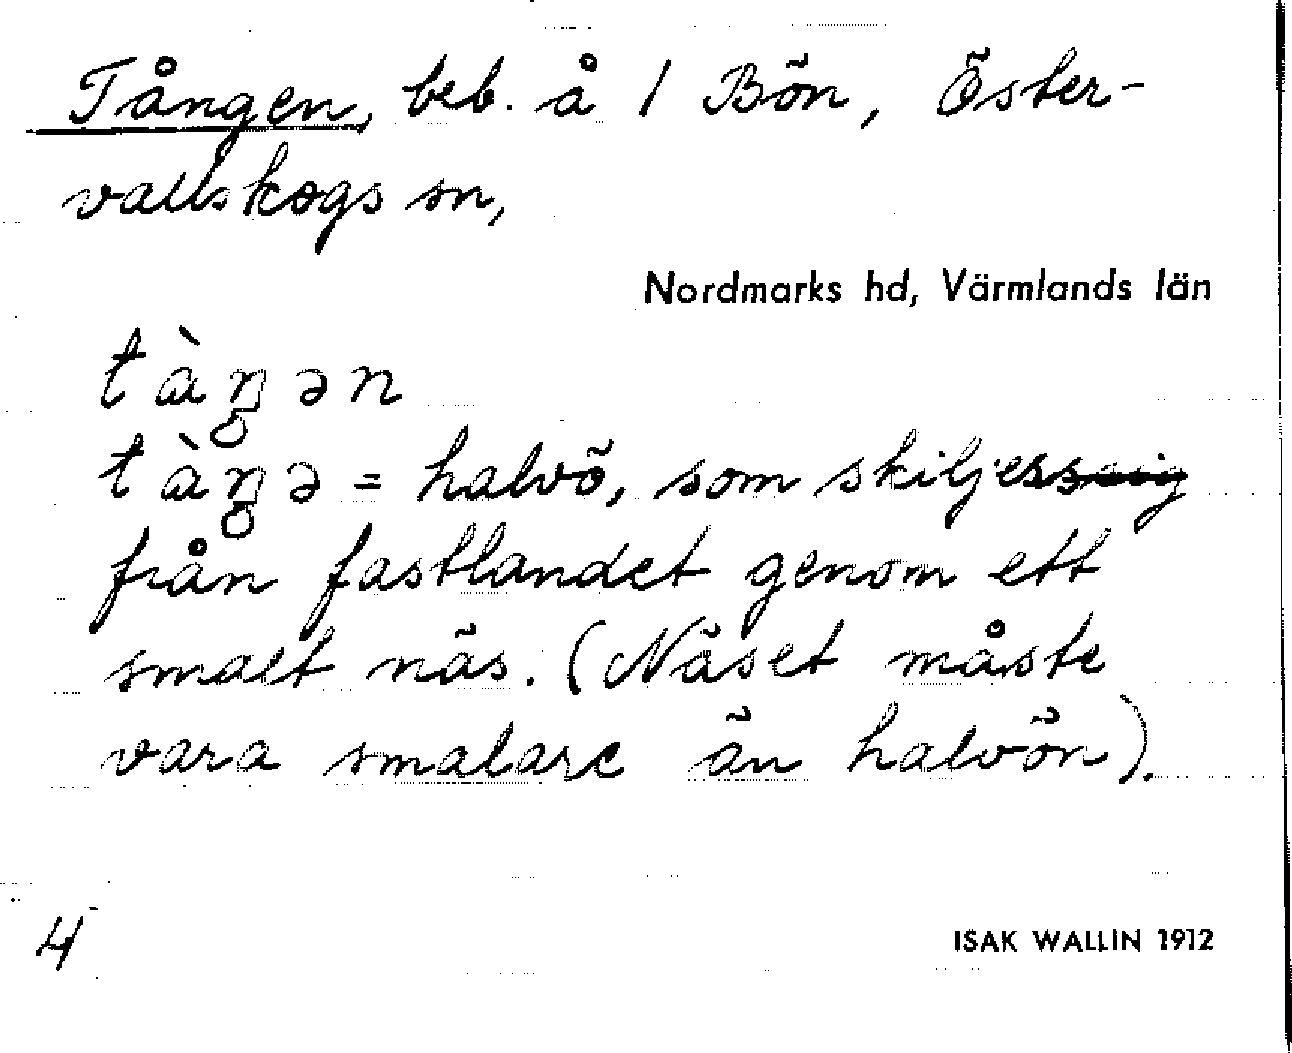 Tången, beb. å 1 Bön, Öster-
vallskogs sn,
Nordmarks hd, Värmlands län
tàŋən
tàŋə = halvö, som skiljes
från fastlandet genom ett
smalt näs. (Näset måste
vara smalare än halvön).
4
ISAK WALLIN 1912